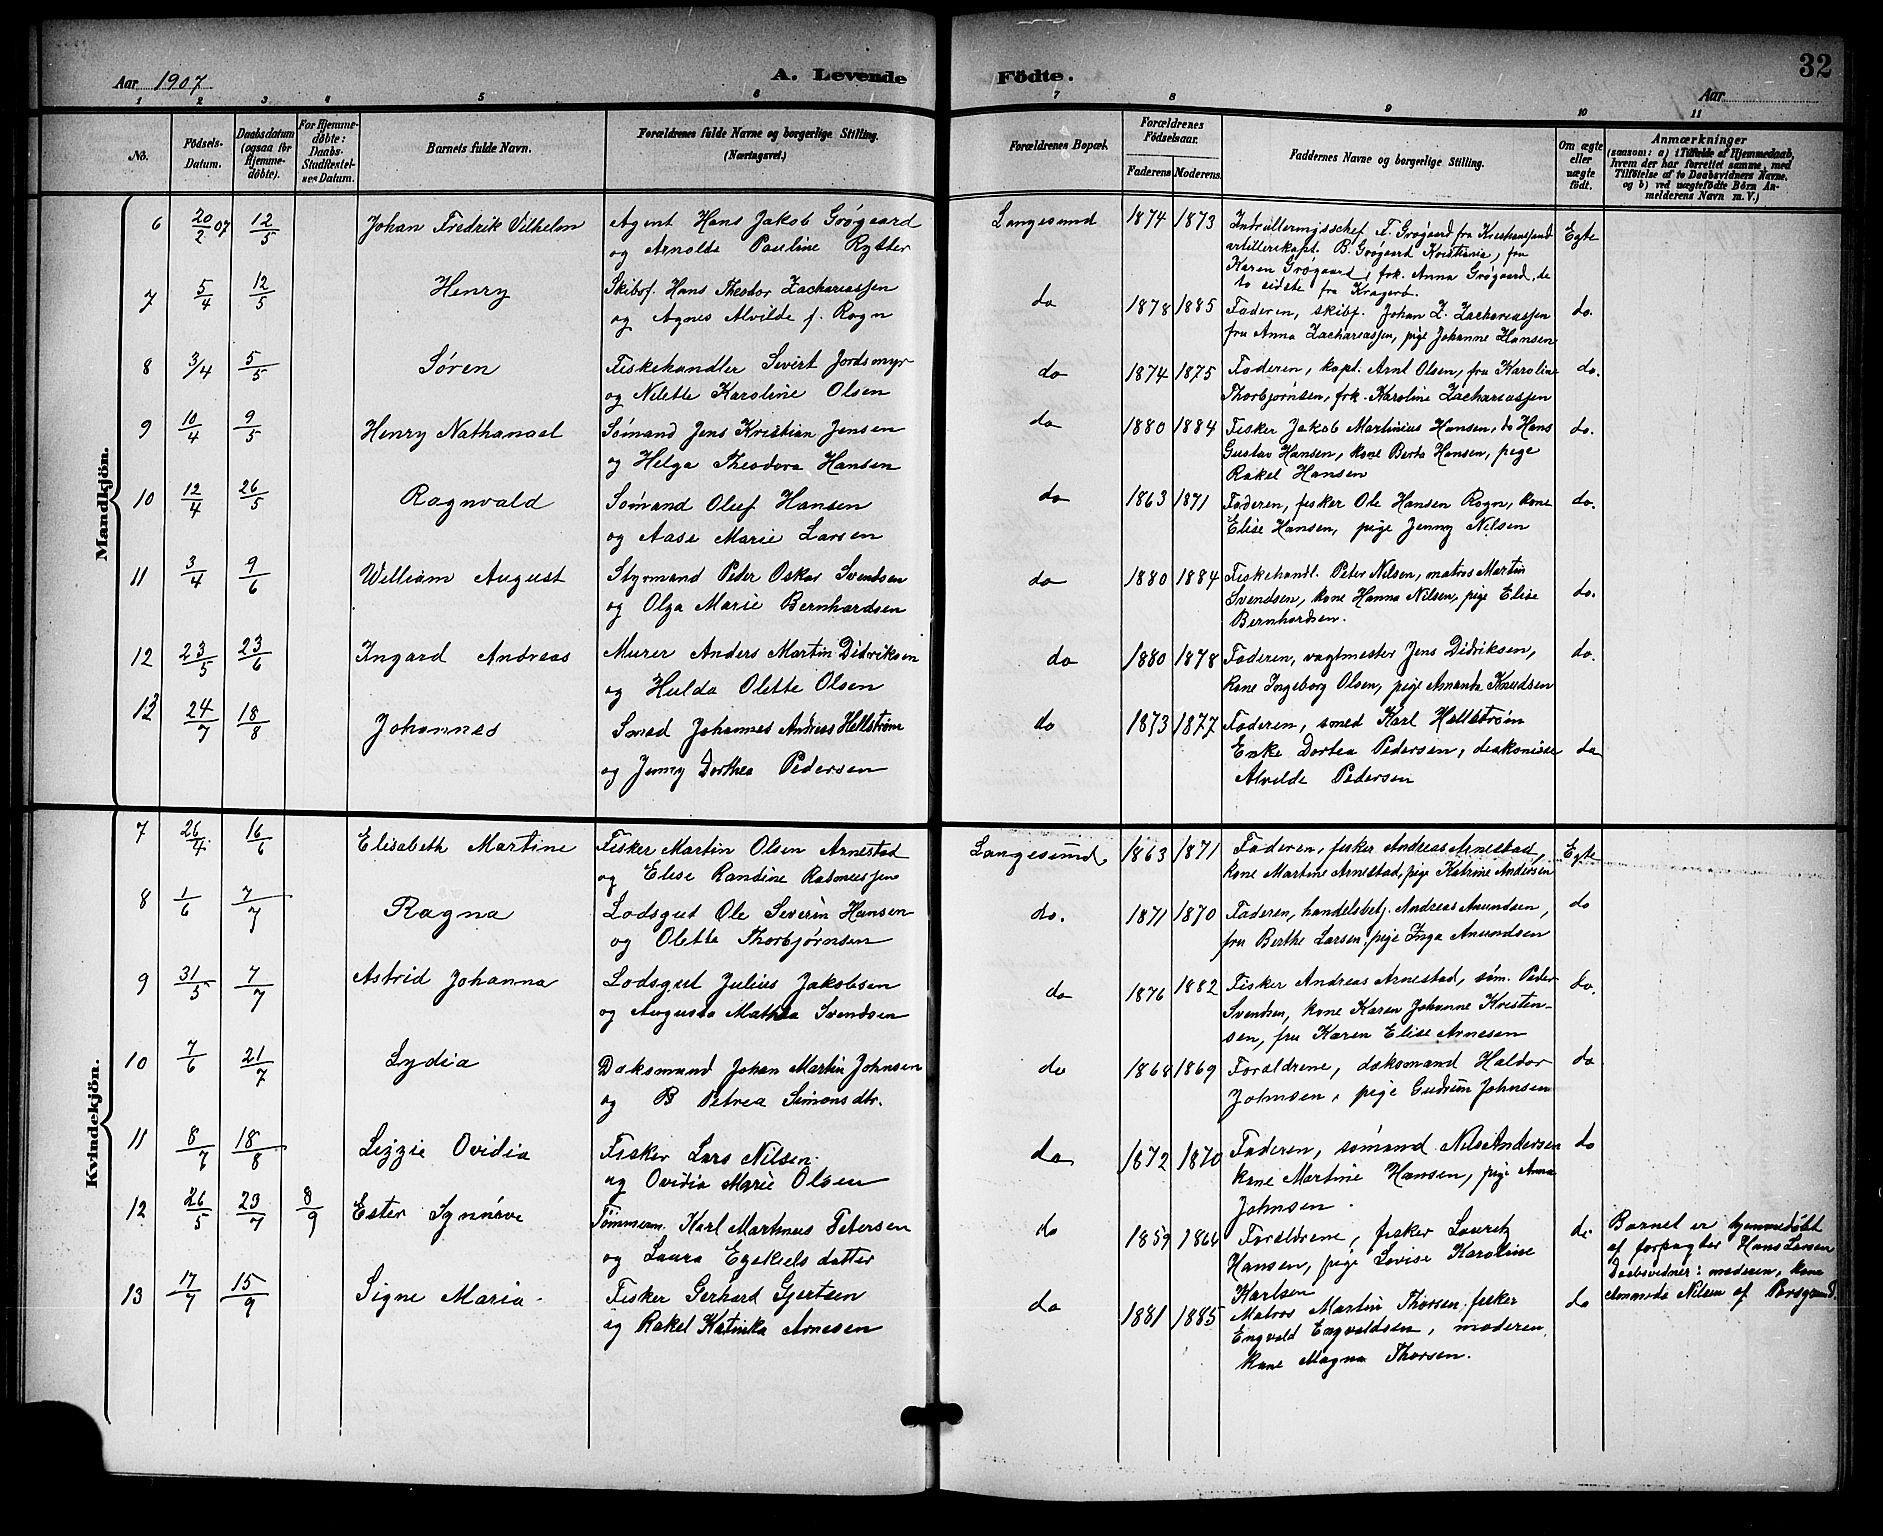 Aar 1907
A. Levende Födte.
Aar
32
1 2 3 4 5 6 7 8 9 10 11
No.
Födsels-Datum.
Daabsdatum (ogsaa for Hjemmedöbte).
For Hjemmedöbte: Daabs-Stadfæstelsens Datum.
Barnets fulde Navn.
Forældrenes fulde Navne og borgerlige Stilling. (Næringsvei.)
Forældrenes Bopæl.
Forældrenes Födselsaar.
Faderens Moderens
Faddernes Navne og borgerlige Stilling.
Om ægte eller uægte födt.
Anmærkninger (saasom: a) i Tilfælde af Hjemmedaab, hvem der har forrettet samme, med Tilföielse af to Daabsvidners Navne, og b) ved uægtefödte Börn Anmelderens Navn m. V.)
Mandkjön.
6 20/2 07 12/5 Johan Fredrik Vilhelm Agent Hans Jakob Grøgaard Langesund 1874 1873 Indrulleringsschef F. Grøgaard fra Kristiansand Egte
og Arnolda Pauline Rytter artillerikapt. B. Grøgaard Kristiania, fru
Karen Grøgaard, frk. Anna Grøgaard, de
to sidste fra Kragerø.
7 5/4 12/5 Henry Skibsf. Hans Theodor Zachariassen do 1878 1885 Faderen, skibsf. Johan Z. Zachariassen do.
og Agnes Alvilde f. Rogn fru Anna Zachariassen, pige Johanne Hansen
8 3/4 5/5 Søren Fiskehandler Sivert Jordsmyr do 1874 1875 Faderen, kapt. Arnt Olsen, fru Karoline do.
og Nilette Karoline Olsen Thorbjørnsen, frk. Karoline Zachariassen
9 10/4 9/5 Henry Nathanael Sømand Jens Kristian Jensen do 1880 1884 Fisker Jakob Martinius Hansen, do Hans do.
og Helga Theodora Hansen Gustav Hansen, kone Berta Hansen, pige
Rakel Hansen
10 12/4 26/5 Ragnvald Sømand Oluf Hansen do 1863 1871 Faderen, fisker Ole Hansen Rogn, kone do.
og Aase Marie Larsen Elise Hansen, pige Jenny Nilsen
11 3/4 9/6 William August Styrmand Peder Oskar Svendsen do 1880 1884 Fiskehandl. Peter Nilsen, matros Martin do.
og Olga Marie Bernhardsen Svendsen, kone Hanna Nilsen, pige Elise
Bernhardsen.
12 23/5 23/6 Ingard Andreas Murer Anders Martin Didriksen do 1880 1878 Faderen, vagtmester Jens Didriksen, do.
og Hulda Olette Olsen kone Ingeborg Olsen, pige Amanda Knudsen
13 24/7 18/8 Johannes Smed Johannes Andreas Hellstrøm do 1873 1877 Faderen, smed Karl Hellstrøm
og Jenny Dorthea Pedersen Enke Dortea Pedersen, diakonisse do
Alvilde Pedersen
Kvindekjön.
7 26/4 16/6 Elisabeth Martine Fisker Martin Olsen Arnestad Langesund 1863 1871 Faderen, fisker Andreas Arnestad, Egte
og Elise Randine kone Martine Arnestad, pige Katrine Andersen
8 1/6 7/7 Ragna Lodsgut Ole Severin Hansen do. 1871 1870 Faderen, handelsbetj. Andreas Amundsen, do
og Olette Thorbjørnsen fru Berthe Larsen, pige Inga Amundsen
9 31/5 7/7 Astrid Johanna Lodsgut Julius Jakobsen do 1876 1882 Fisker Andreas Arnestad, søm. Peder do.
og Augusta Mathea Svendsen Svendsen, kone Karen Johanne Kristen-
sen, fru Karen Elise Arnesen
10 7/6 21/7 Lydia Doksmand Johan Martin Johnsen do 1868 1869 Forældrene, doksmand Haldor do
og B Petrea Simonsdtr. Johnsen, pige Gudrun Johnsen
11 8/7 18/8 Lizzie Ovidia Fisker Lars Nilsen. do 1872 1870 Faderen, sømand Nils Andersen do
og Ovidia Marie Olsen kone Martine Hansen, pige Anna
Johnsen.
12 26/5 23/7 8/9 Ester Synnøve Tømmerm. Karl Martinus Petersen do 1859 1864 Forældrene, fisker Lauritz do. Barnet er hjemmedøbt
og Laura Ezekielsdatter Hansen, pige Lovise Karoline af forpagter Hans Larsen
Karlsen Daabsvidner: moderen, kone
Ammanda Nilsen af Porsgrund.
13 17/7 15/9 Signe Maria Fisker Gerhard Gjertsen do 1881 1885 Matros Martin Thorsen, fisker do
og Rakel Katinka Arnesen Engvald Engvaldsen, moderen,
kone Magna Thorsen.